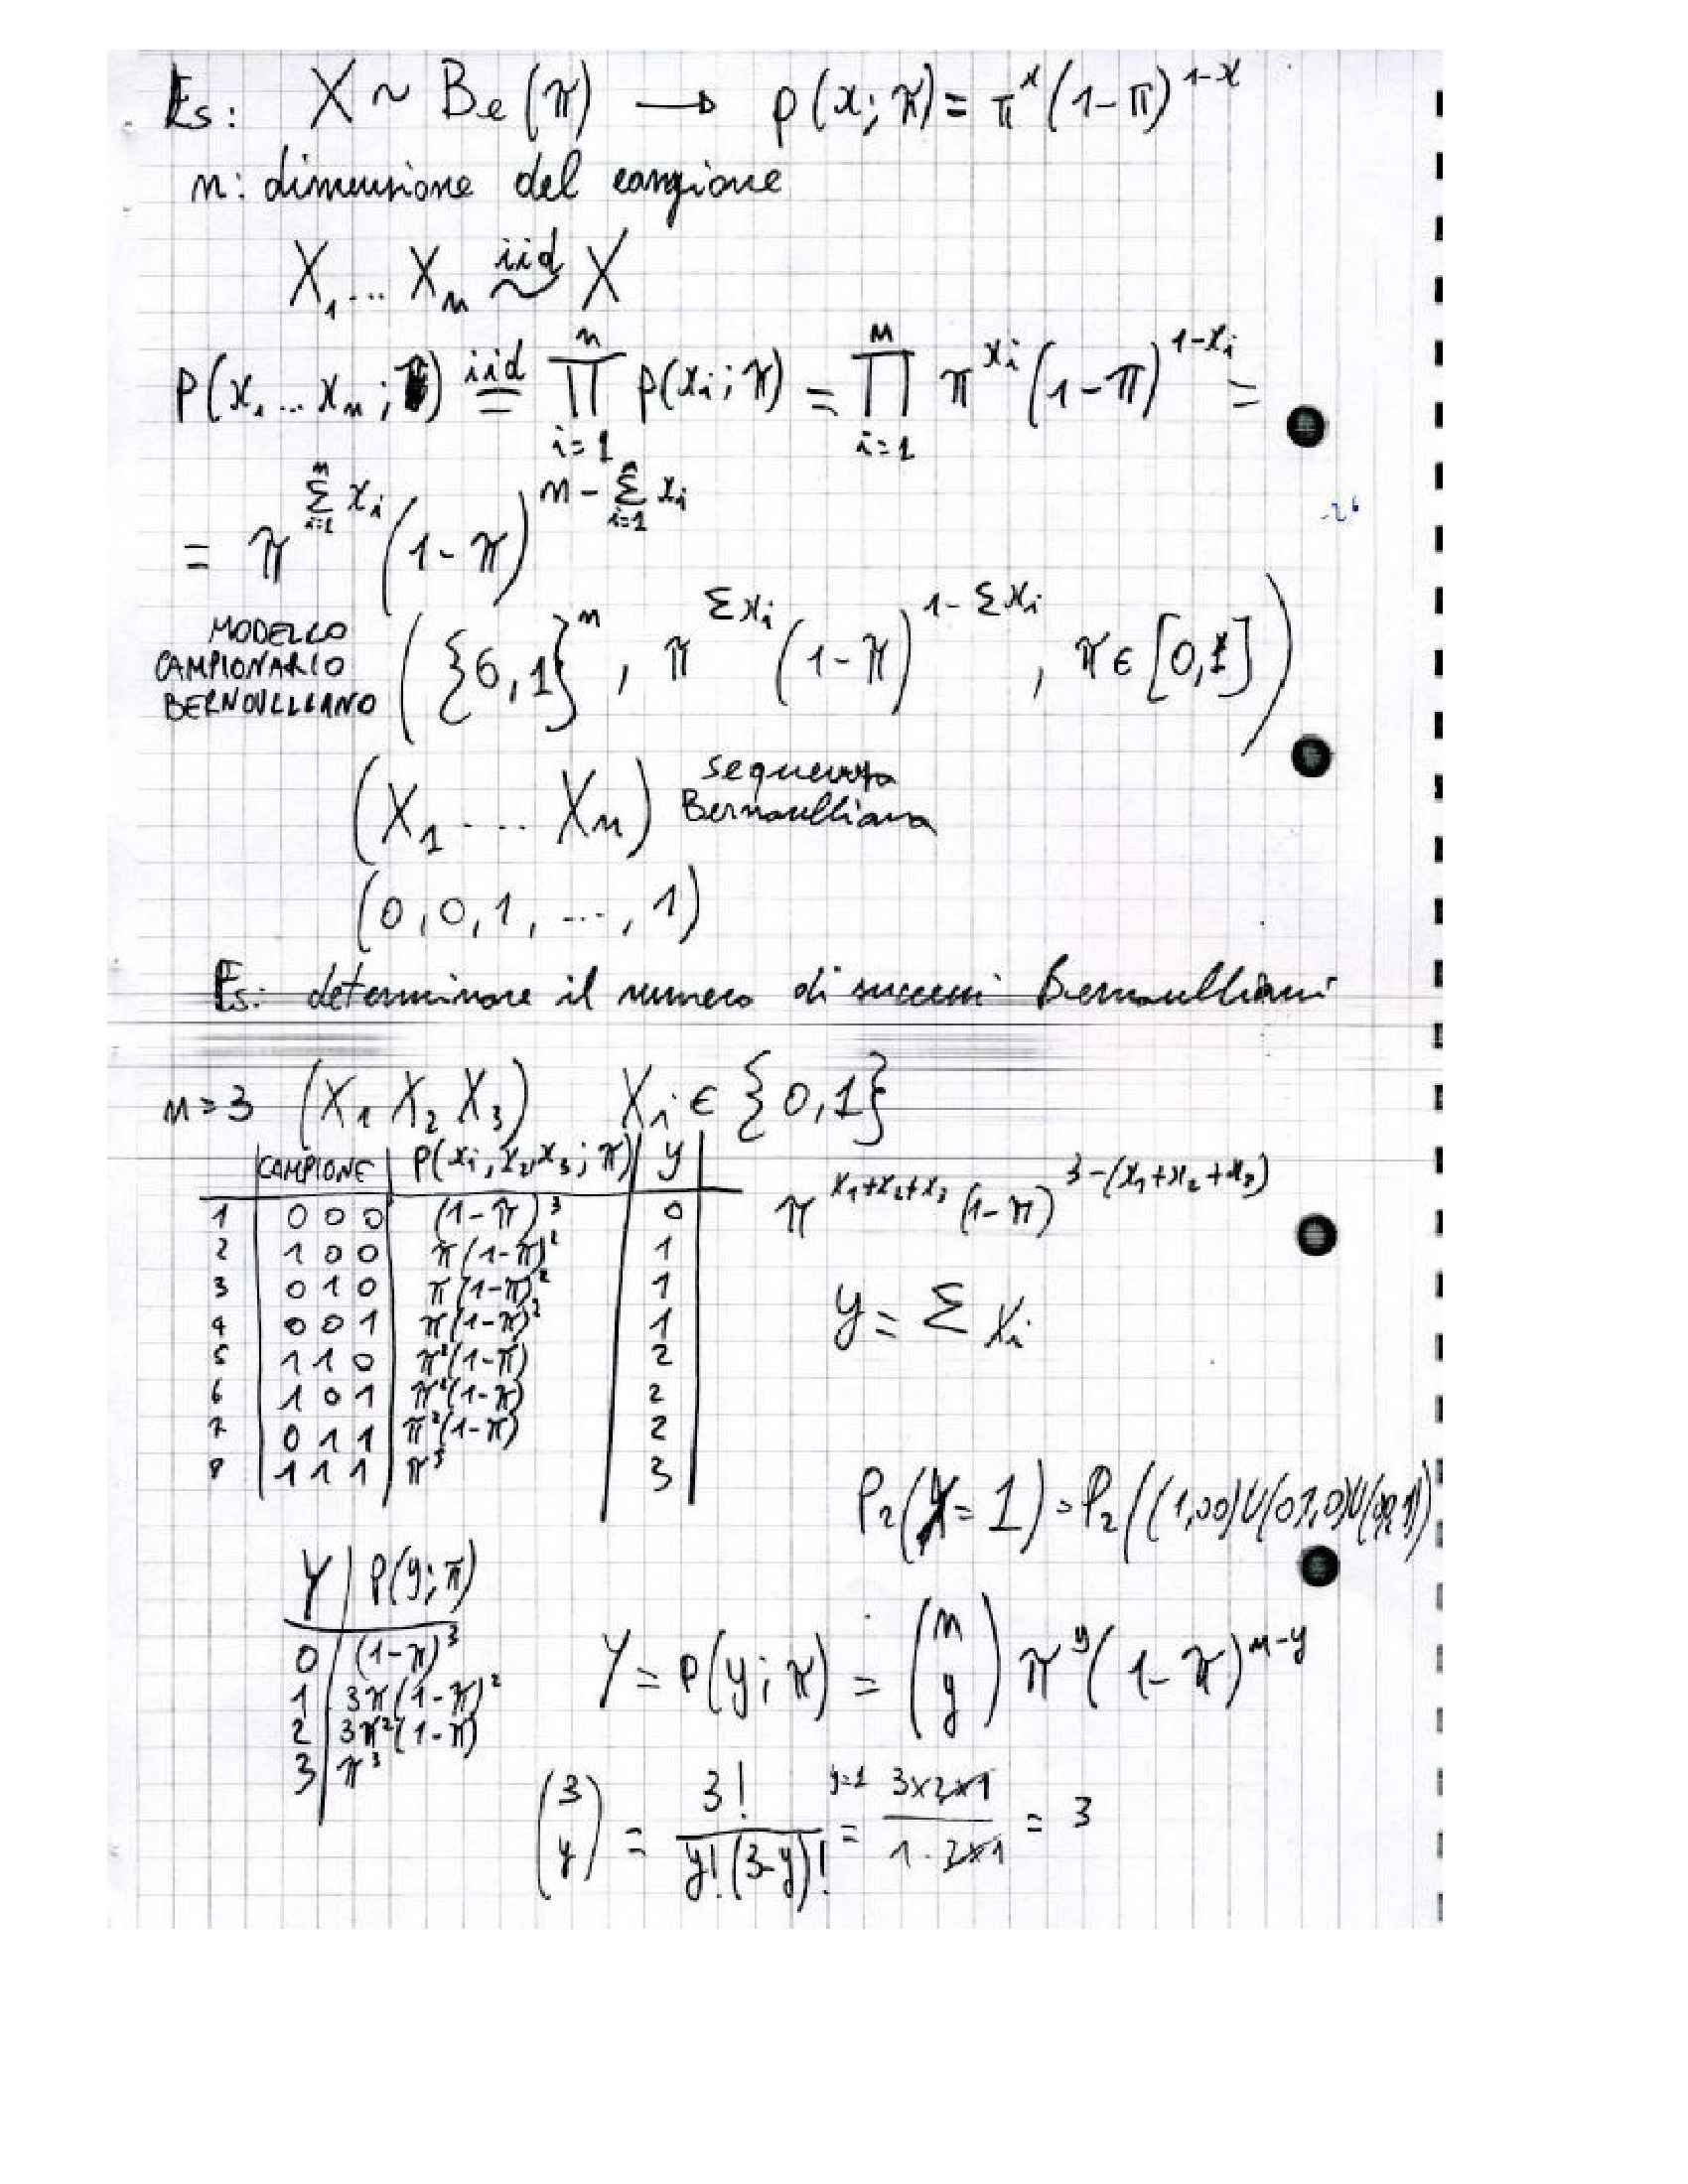 Es: X ~ Be(π) → p(x; π) = π^x (1-π)^{1-x}
n: dimensione del campione
X₁ ... Xₙ iid ~ X
P(x₁ ... xₙ; π) iid = ∏_{i=1}^{n} p(xᵢ; π) = ∏_{i=1}^{n} π^{xᵢ} (1-π)^{1-xᵢ} =
= π^{Σ_{i=1}^{n} xᵢ} (1-π)^{n - Σ_{i=1}^{n} xᵢ}
MODELLO CAMPIONARIO BERNOULLIANO ( {0,1}ⁿ , π^{Σxᵢ} (1-π)^{1-Σxᵢ} , π ∈ [0,1] )
(X₁ .... Xₙ) sequenza Bernoulliana
(0, 0, 1, ..., 1)
Es: determinare il numero di successi Bernoulliani
n = 3 (X₁ X₂ X₃) Xᵢ ∈ {0,1}
CAMPIONE | P(xᵢ, x₂, x₃; π) | y
π^{x₁+x₂+x₃} (1-π)^{3-(x₁+x₂+x₃)}
1 | 0 0 0 | (1-π)³ | 0
2 | 1 0 0 | π(1-π)² | 1
3 | 0 1 0 | π(1-π)² | 1
4 | 0 0 1 | π(1-π)² | 1
y = Σ Xᵢ
5 | 1 1 0 | π²(1-π) | 2
6 | 1 0 1 | π²(1-π) | 2
7 | 0 1 1 | π²(1-π) | 2
8 | 1 1 1 | π³ | 3
P₂(Y = 1) = P₂((1,00)U(01,0)U(0,01))
Y | P(y; π)
0 | (1-π)³
1 | 3π(1-π)²
2 | 3π²(1-π)
3 | π³
Y = P(y; π) = (n y) π^y (1-π)^{n-y}
(3 y) = 3! / y!(3-y)! y=1 = 3×2×1 / 1·2×1 = 3